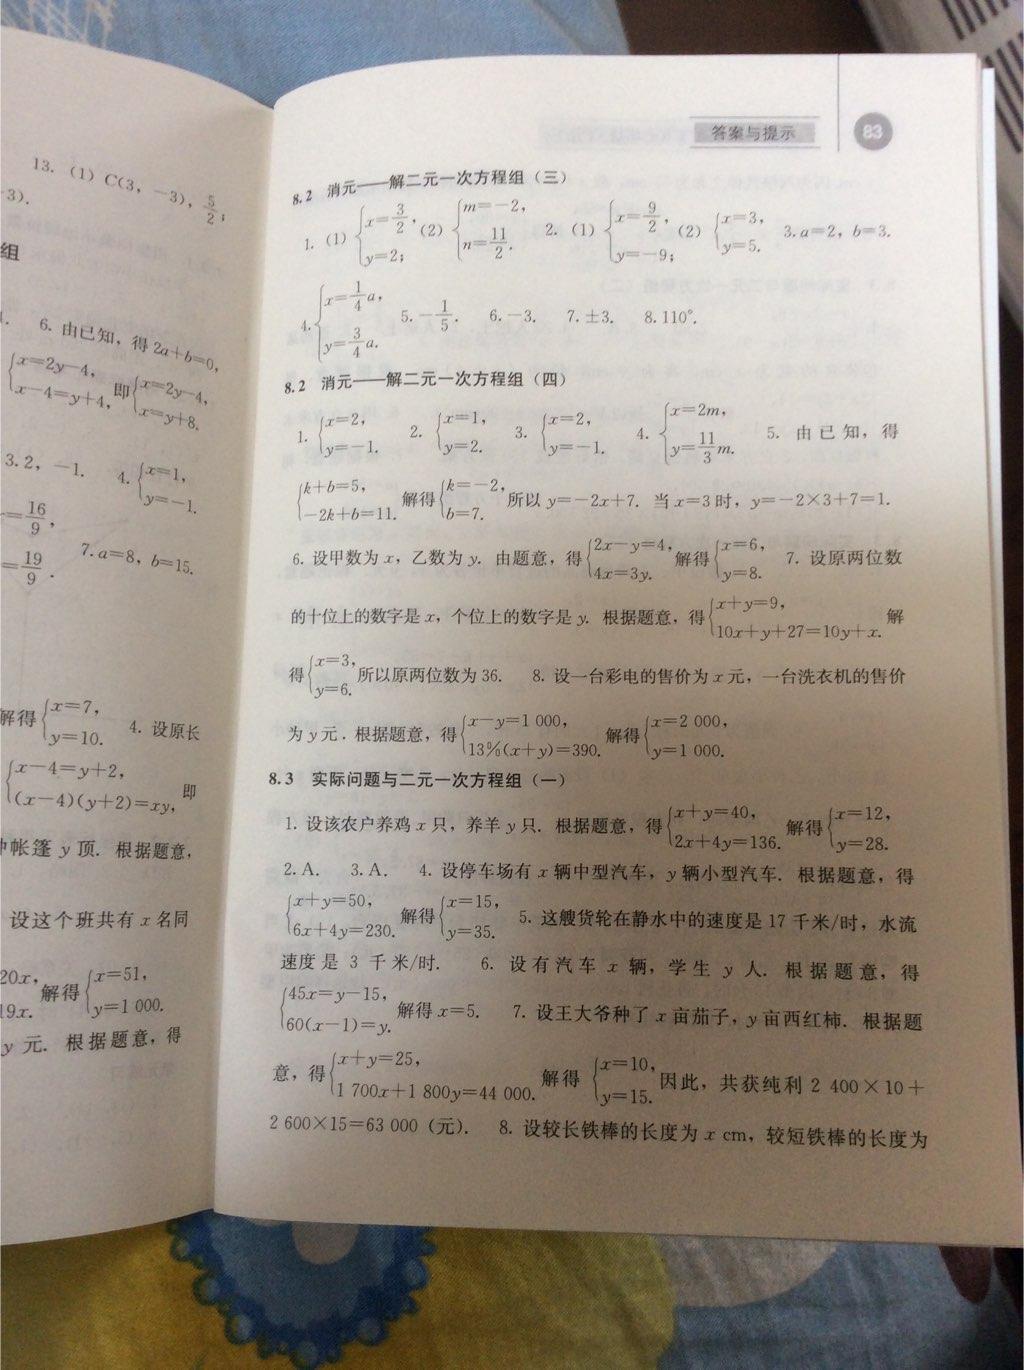 13. (1) C(3, -3), 5/2;
-3).
组
6. 由已知，得 2a+b=0,
{x=2y-4, x-4=y+4, 即 {x=2y-4, x=y+8.
3. 2, -1. 4. {x=1, y=-1.
=16/9,
=19/9. 7. a=8, b=15.
解得 {x=7, y=10. 4. 设原长
{x-4=y+2, (x-4)(y+2)=xy, 即
帐篷 y 顶. 根据题意,
设这个班共有 x 名同
20x, 19x. 解得 {x=51, y=1 000.
y 元. 根据题意, 得
答案与提示 83
8.2 消元——解二元一次方程组（三）
1. (1) {x=3/2, y=2; (2) {m=-2, n=11/2. 2. (1) {x=9/2, y=-9; (2) {x=3, y=5. 3. a=2, b=3.
4. {x=1/4 a, y=3/4 a. 5. -1/5. 6. -3. 7. ±3. 8. 110°.
8.2 消元——解二元一次方程组（四）
1. {x=2, y=-1. 2. {x=1, y=2. 3. {x=2, y=-1. 4. {x=2m, y=11/3 m. 5. 由已知，得
{k+b=5, -2k+b=11. 解得 {k=-2, b=7. 所以 y=-2x+7. 当 x=3 时，y=-2×3+7=1.
6. 设甲数为 x，乙数为 y. 由题意，得 {2x-y=4, 4x=3y. 解得 {x=6, y=8. 7. 设原两位数
的十位上的数字是 x，个位上的数字是 y. 根据题意，得 {x+y=9, 10x+y+27=10y+x. 解
得 {x=3, y=6. 所以原两位数为 36. 8. 设一台彩电的售价为 x 元，一台洗衣机的售价
为 y 元. 根据题意，得 {x-y=1 000, 13%(x+y)=390. 解得 {x=2 000, y=1 000.
8.3 实际问题与二元一次方程组（一）
1. 设该农户养鸡 x 只，养羊 y 只. 根据题意，得 {x+y=40, 2x+4y=136. 解得 {x=12, y=28.
2. A. 3. A. 4. 设停车场有 x 辆中型汽车，y 辆小型汽车. 根据题意，得
{x+y=50, 6x+4y=230. 解得 {x=15, y=35. 5. 这艘货轮在静水中的速度是 17 千米/时，水流
速度是 3 千米/时. 6. 设有汽车 x 辆，学生 y 人. 根据题意，得
{45x=y-15, 60(x-1)=y. 解得 x=5. 7. 设王大爷种了 x 亩茄子，y 亩西红柿. 根据题
意，得 {x+y=25, 1 700x+1 800y=44 000. 解得 {x=10, y=15. 因此，共获纯利 2 400×10+
2 600×15=63 000（元）. 8. 设较长铁棒的长度为 x cm，较短铁棒的长度为